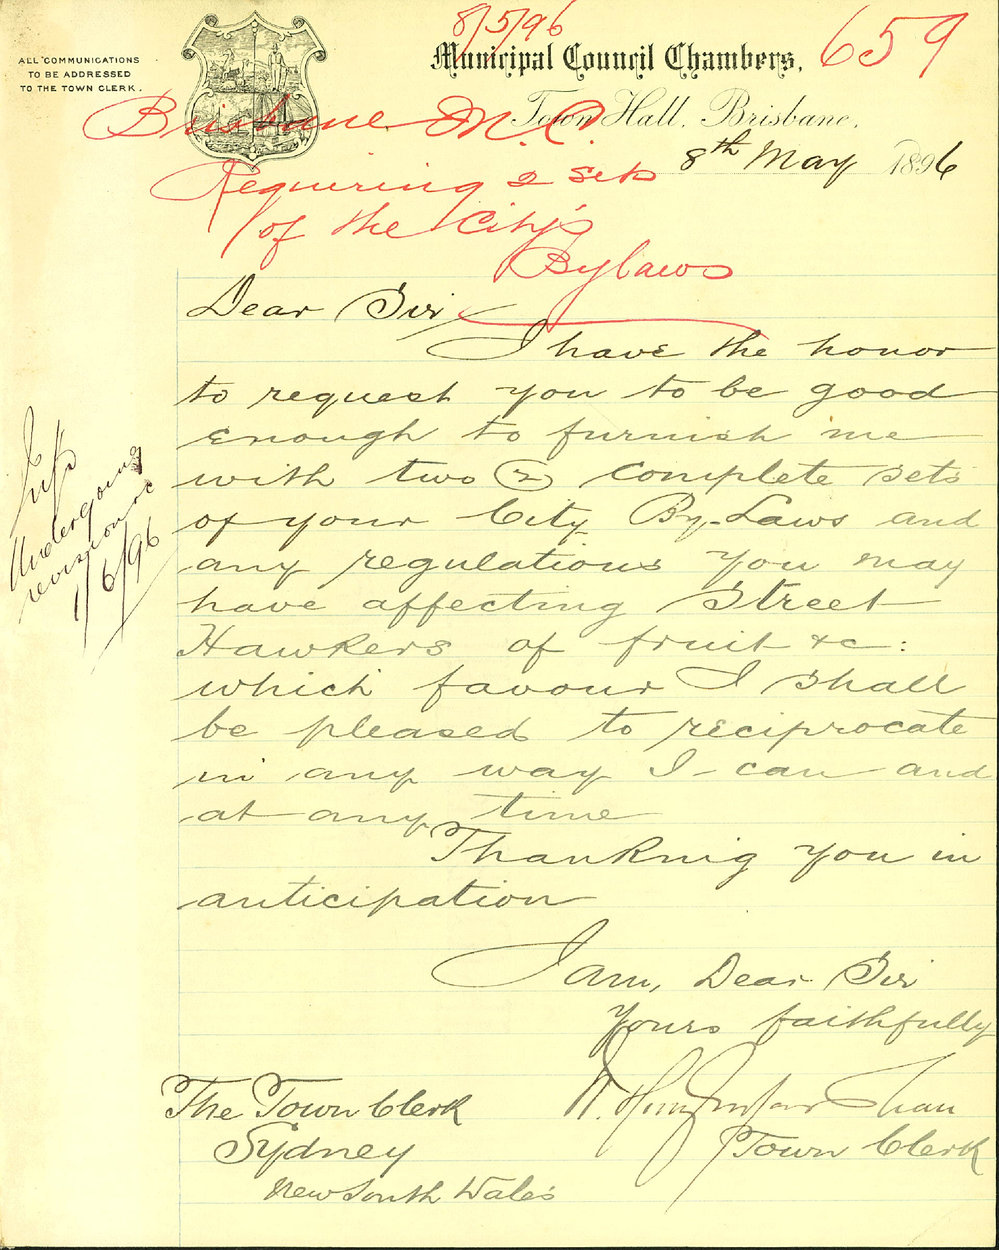 8/5/96
659
ALL COMMUNICATIONS
TO BE ADDRESSED
TO THE TOWN CLERK.
Municipal Council Chambers,
Town Hall, Brisbane,
8th May 1896
Brisbane M.C.
Requiring 2 sets
of the City's
Bylaws
Dear Sir
I have the honor
to request you to be good
enough to furnish me
with two (2) complete sets
of your City By-Laws and
any regulations you may
have affecting Street
Hawkers of fruit &c:
which favour I shall
be pleased to reciprocate
in any way I can and
at any time
Thanking you in
anticipation
I am, Dear Sir
Yours faithfully
Town Clerk
The Town Clerk
Sydney
New South Wales
Undergoing
revision
1/6/96